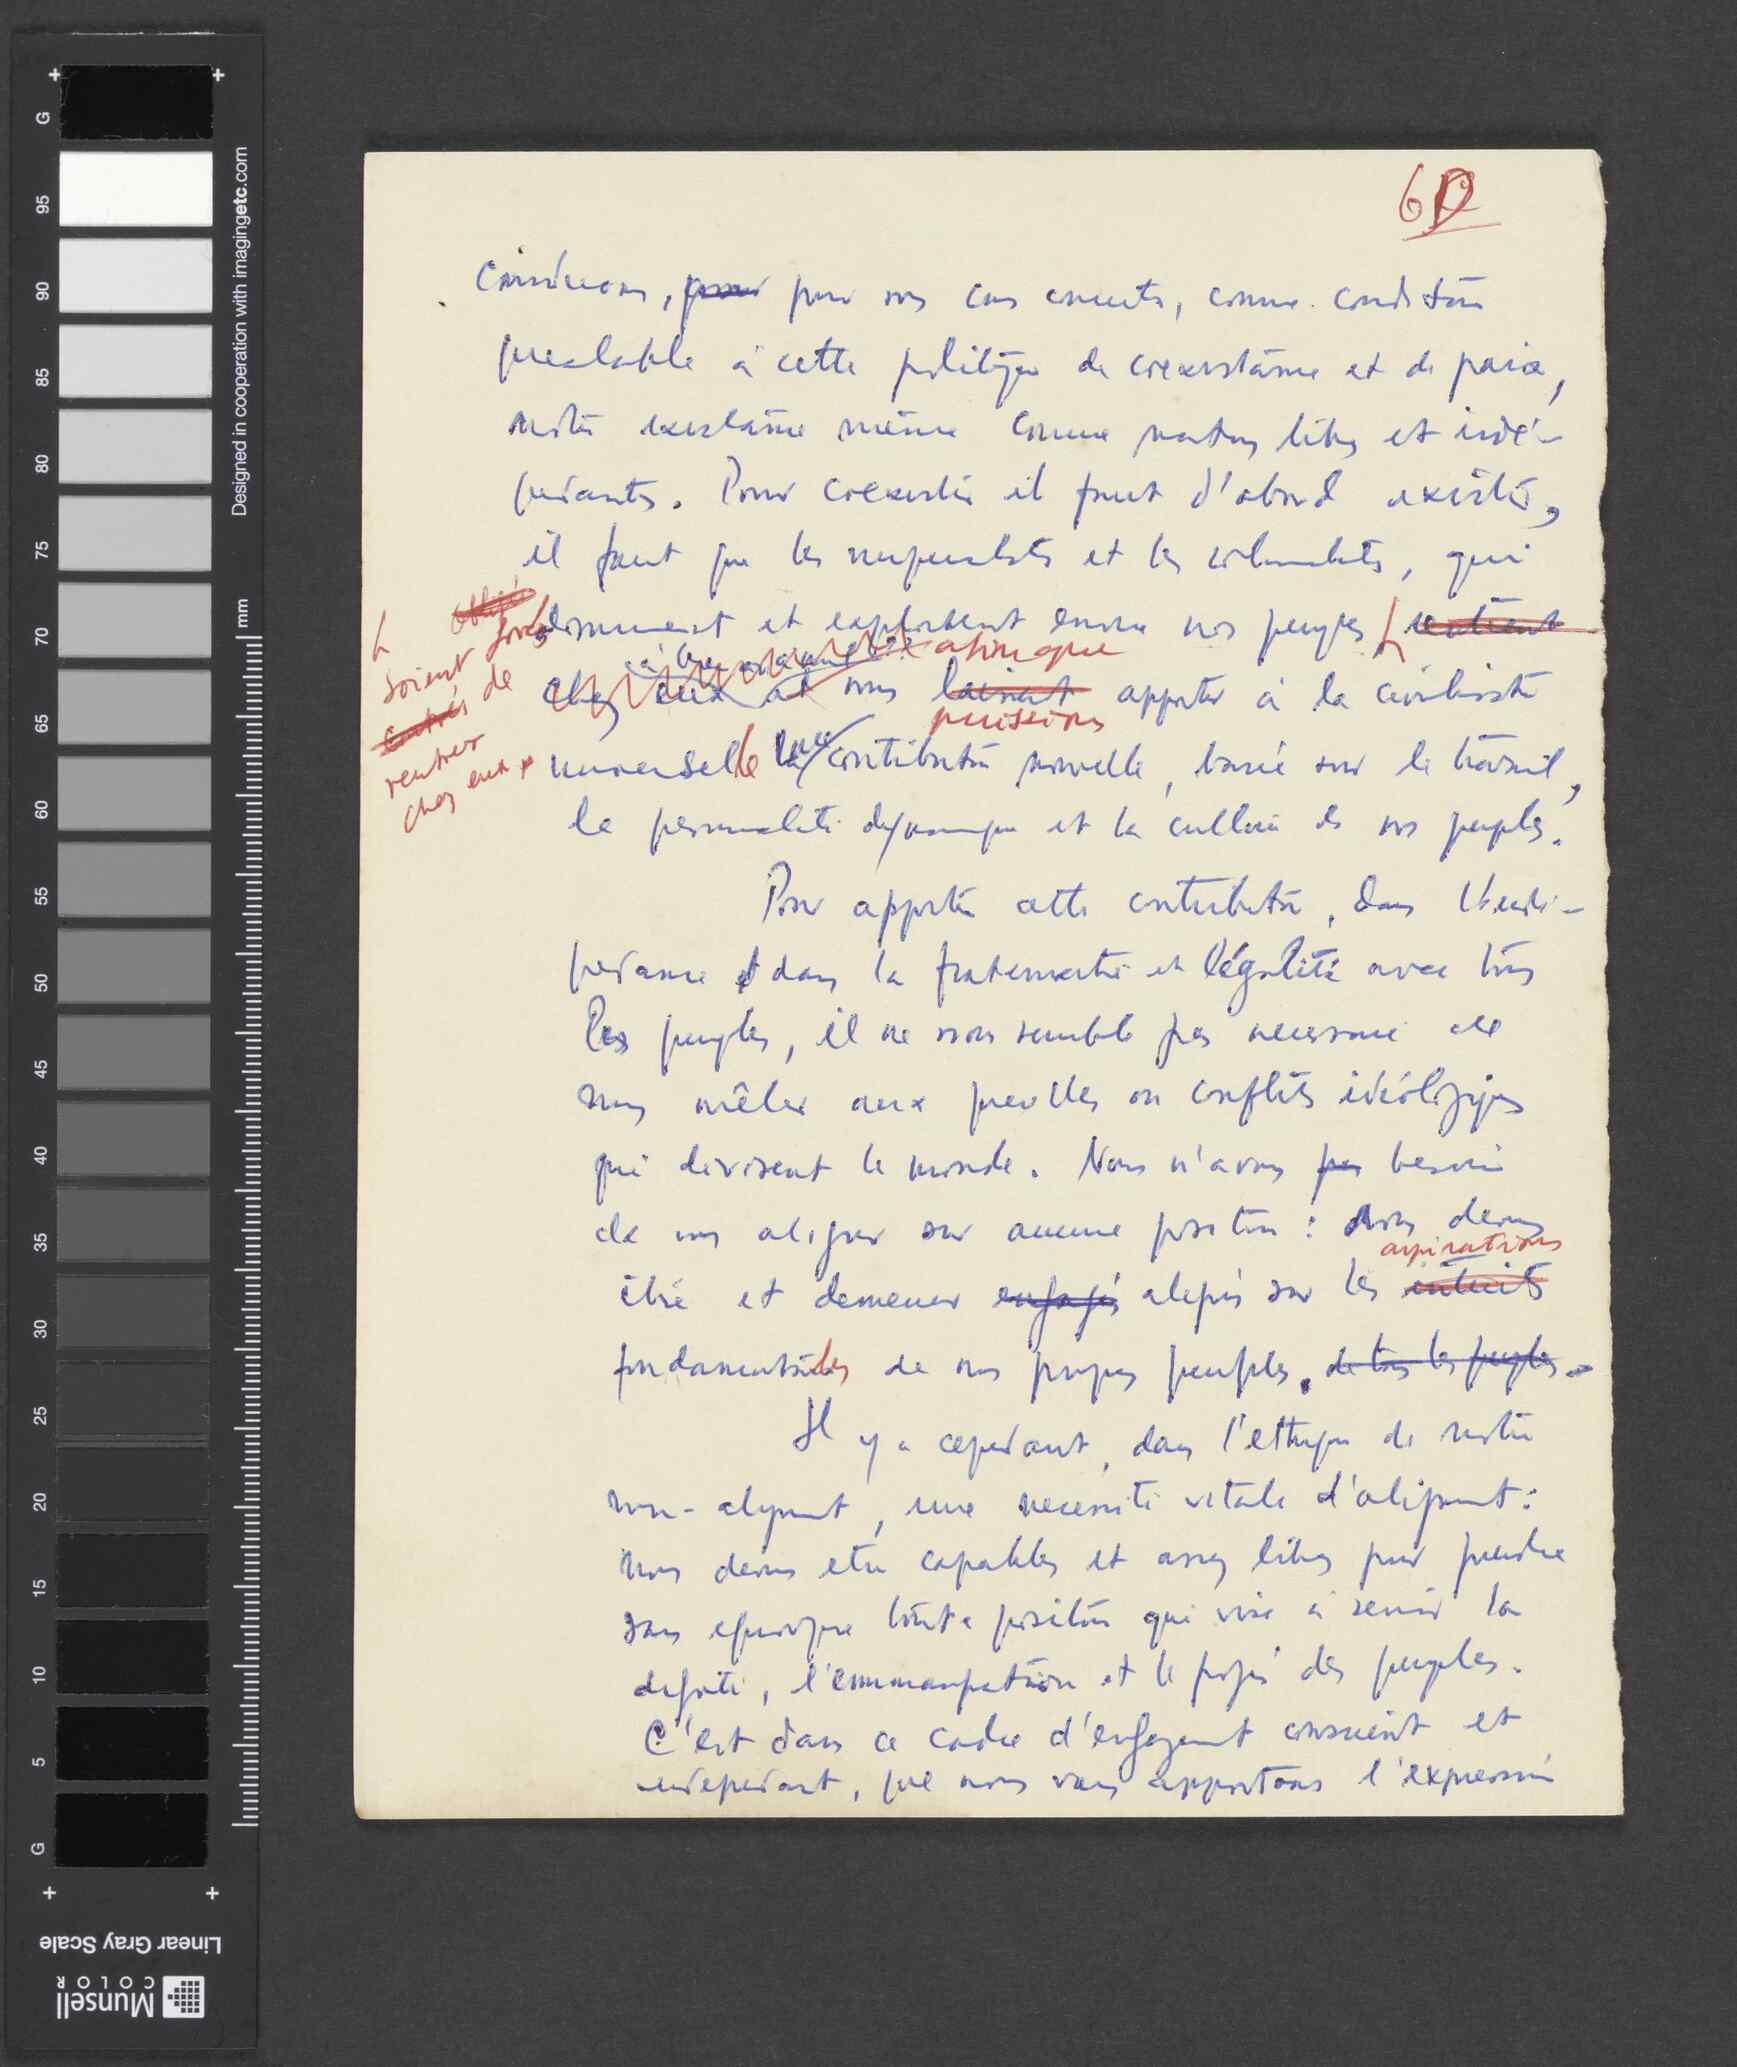 6
considérons, pour pour nos cas concrets, comme condition
prealable à cette politique de coexistence et de paix,
notre existence même comme nations libres et indé-
pendantes. Pour coexister il faut d'abord exister,
il faut que les imperialistes et les colonialistes, qui
dominent et exploitent encore nos peuples rentrent
obligés
soient forcés de
rentrer
chez eux
à leur afin que
chez eux et nous laissent apporter à la civilisation
puissions
universelle une contribution nouvelle, basée sur le travail,
la personnalité dynamique et la culture de nos peuples.
Pour apporter cette contribution, dans l'indé-
pendance et dans la fraternité et l'égalité avec tous
les peuples, il ne nous semble pas necessaire de
nous mêler aux querelles ou conflits idéologiques
qui divisent le monde. Nous n'avons pas besoin
de nous aligner sur aucune position : nous devons
aspirations
être et demeurer engagés alignés sur les intérêts
fondamentales de nos propres peuples. de tous les peuples.
Il y a cependant, dans l'ethique de notre
non-alignement, une necessité vitale d'alignement :
nous devons etre capables et assez libres pour prendre
sans equivoque toute position qui vise à servir la
dignité, l'emmancipation et le progrès des peuples.
C'est dans ce cadre d'engagement conscient et
independant, que nous vous apportons l'expression
Designed in cooperation with imagingetc.com
mm
G
95
90
85
80
75
70
65
60
55
50
45
40
35
30
25
20
15
10
5
G
Linear Gray Scale
Munsell
COLOR